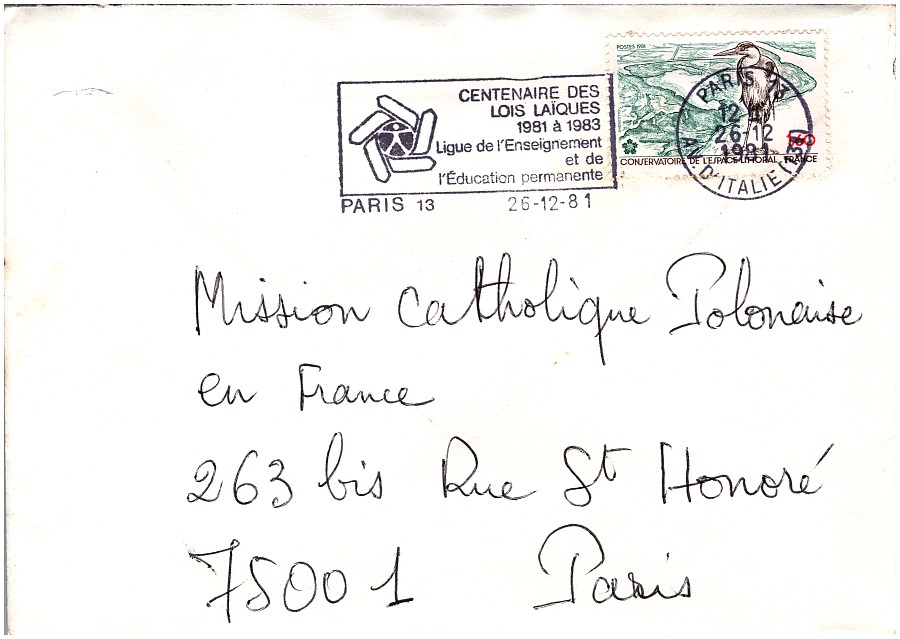 POSTES 1981
CENTENAIRE DES
LOIS LAÏQUES
1981 à 1983
Ligue de l'Enseignement
et de
l'Éducation permanente
PARIS 13
26-12-81
PARIS
26-12
1981
AV. D'ITALIE (13e)
1,60
CONSERVATOIRE DE L'ESPACE LITTORAL FRANCE
Mission Catholique Polonaise
en France
263 bis Rue St Honoré
75001 Paris